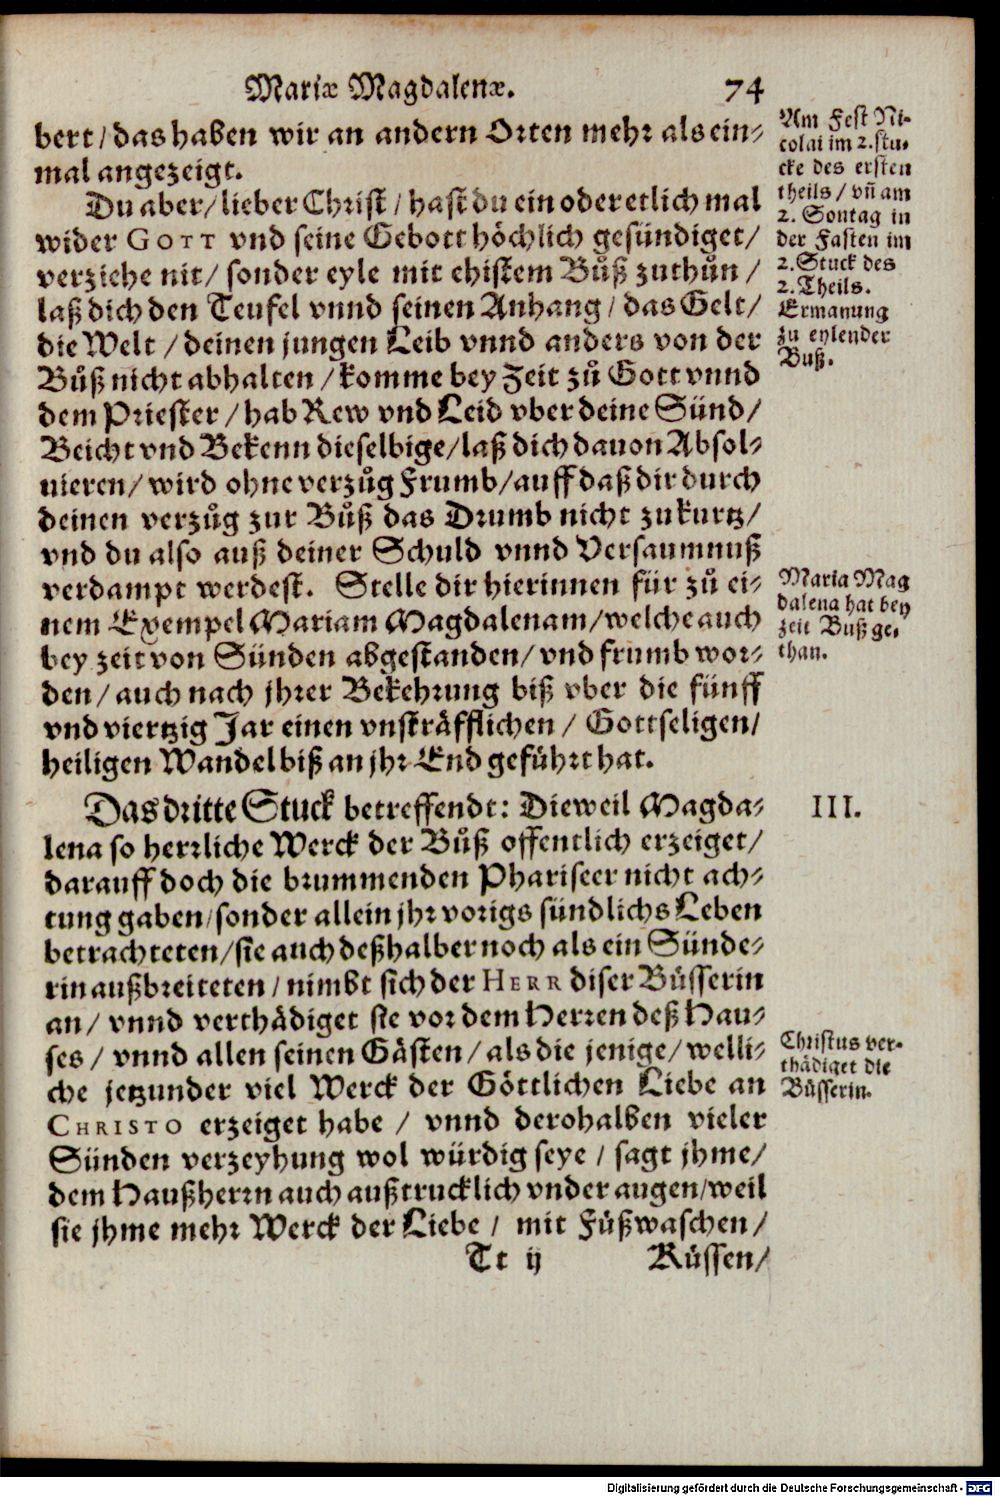 Mariæ Magdalenæ. 74
bert/ das haben wir an andern Orten mehr als ein⸗
mal angezeigt.
Du aber/ lieber Christ/ hast du ein oder etlich mal
wider GOTT vnd seine Gebott höchlich gesündiget/
verziehe nit/ sonder eyle mit ehistem Bůß zuthůn/
laß dich den Teufel vnnd seinen Anhang/ das Gelt/
die Welt/ deinen jungen Leib vnnd anders von der
Bůß nicht abhalten/ komme bey Zeit zů Gott vnnd
dem Priester/ hab Rew vnd Leid vber deine Sünd/
Beicht vnd Bekenn dieselbige/ laß dich dauon Absol⸗
uieren/ wird ohne verzůg Frumb/ auff daß dir durch
deinen verzůg zur Bůß das Drumb nicht zukurtz/
vnd du also auß deiner Schuld vnnd Versaumnuß
verdampt werdest. Stelle dir hierinnen für zů ei⸗
nem Exempel Mariam Magdalenam/ welche auch
bey zeit von Sünden abgestanden/ vnd frumb wor⸗
den/ auch nach jhrer Bekehrung biß vber die fünff
vnd viertzig Jar einen vnsträfflichen/ Gottseligen/
heiligen Wandel biß an jhr End geführt hat.
Das dritte Stuck betreffendt: Dieweil Magda⸗
lena so herrliche Werck der Bůß offentlich erzeiget/
darauff doch die brummenden Phariseer nicht ach⸗
tung gaben/ sonder allein jhr vorigs sündlichs Leben
betrachteten/ sie auch deßhalber noch als ein Sünde⸗
rin außbreiteten/ nimbt sich der HERR diser Büsserin
an/ vnnd verthädiget sie vor dem Herren deß Hau⸗
ses/ vnnd allen seinen Gästen/ als die jenige/ welli⸗
che jetzunder viel Werck der Göttlichen Liebe an
CHRISTO erzeiget habe/ vnnd derohalben vieler
Sünden verzeyhung wol würdig seye/ sagt jhme/
dem Haußherrn auch außtrucklich vnder augen/ weil
sie jhme mehr Werck der Liebe/ mit Füßwaschen/
Tt ij Küssen/
Am Fest Ni⸗
colai im 2. stu⸗
cke des ersten
theils/ vñ am
2. Sontag in
der Fasten im
2. Stuck des
2. Theils.
Ermanung
zu eylender
Buß.
Maria Mag
dalena hat bey
zeit Buß ge⸗
than.
III.
Christus ver⸗
thädiget die
Büsserin.
Digitalisierung gefördert durch die Deutsche Forschungsgemeinschaft - DFG